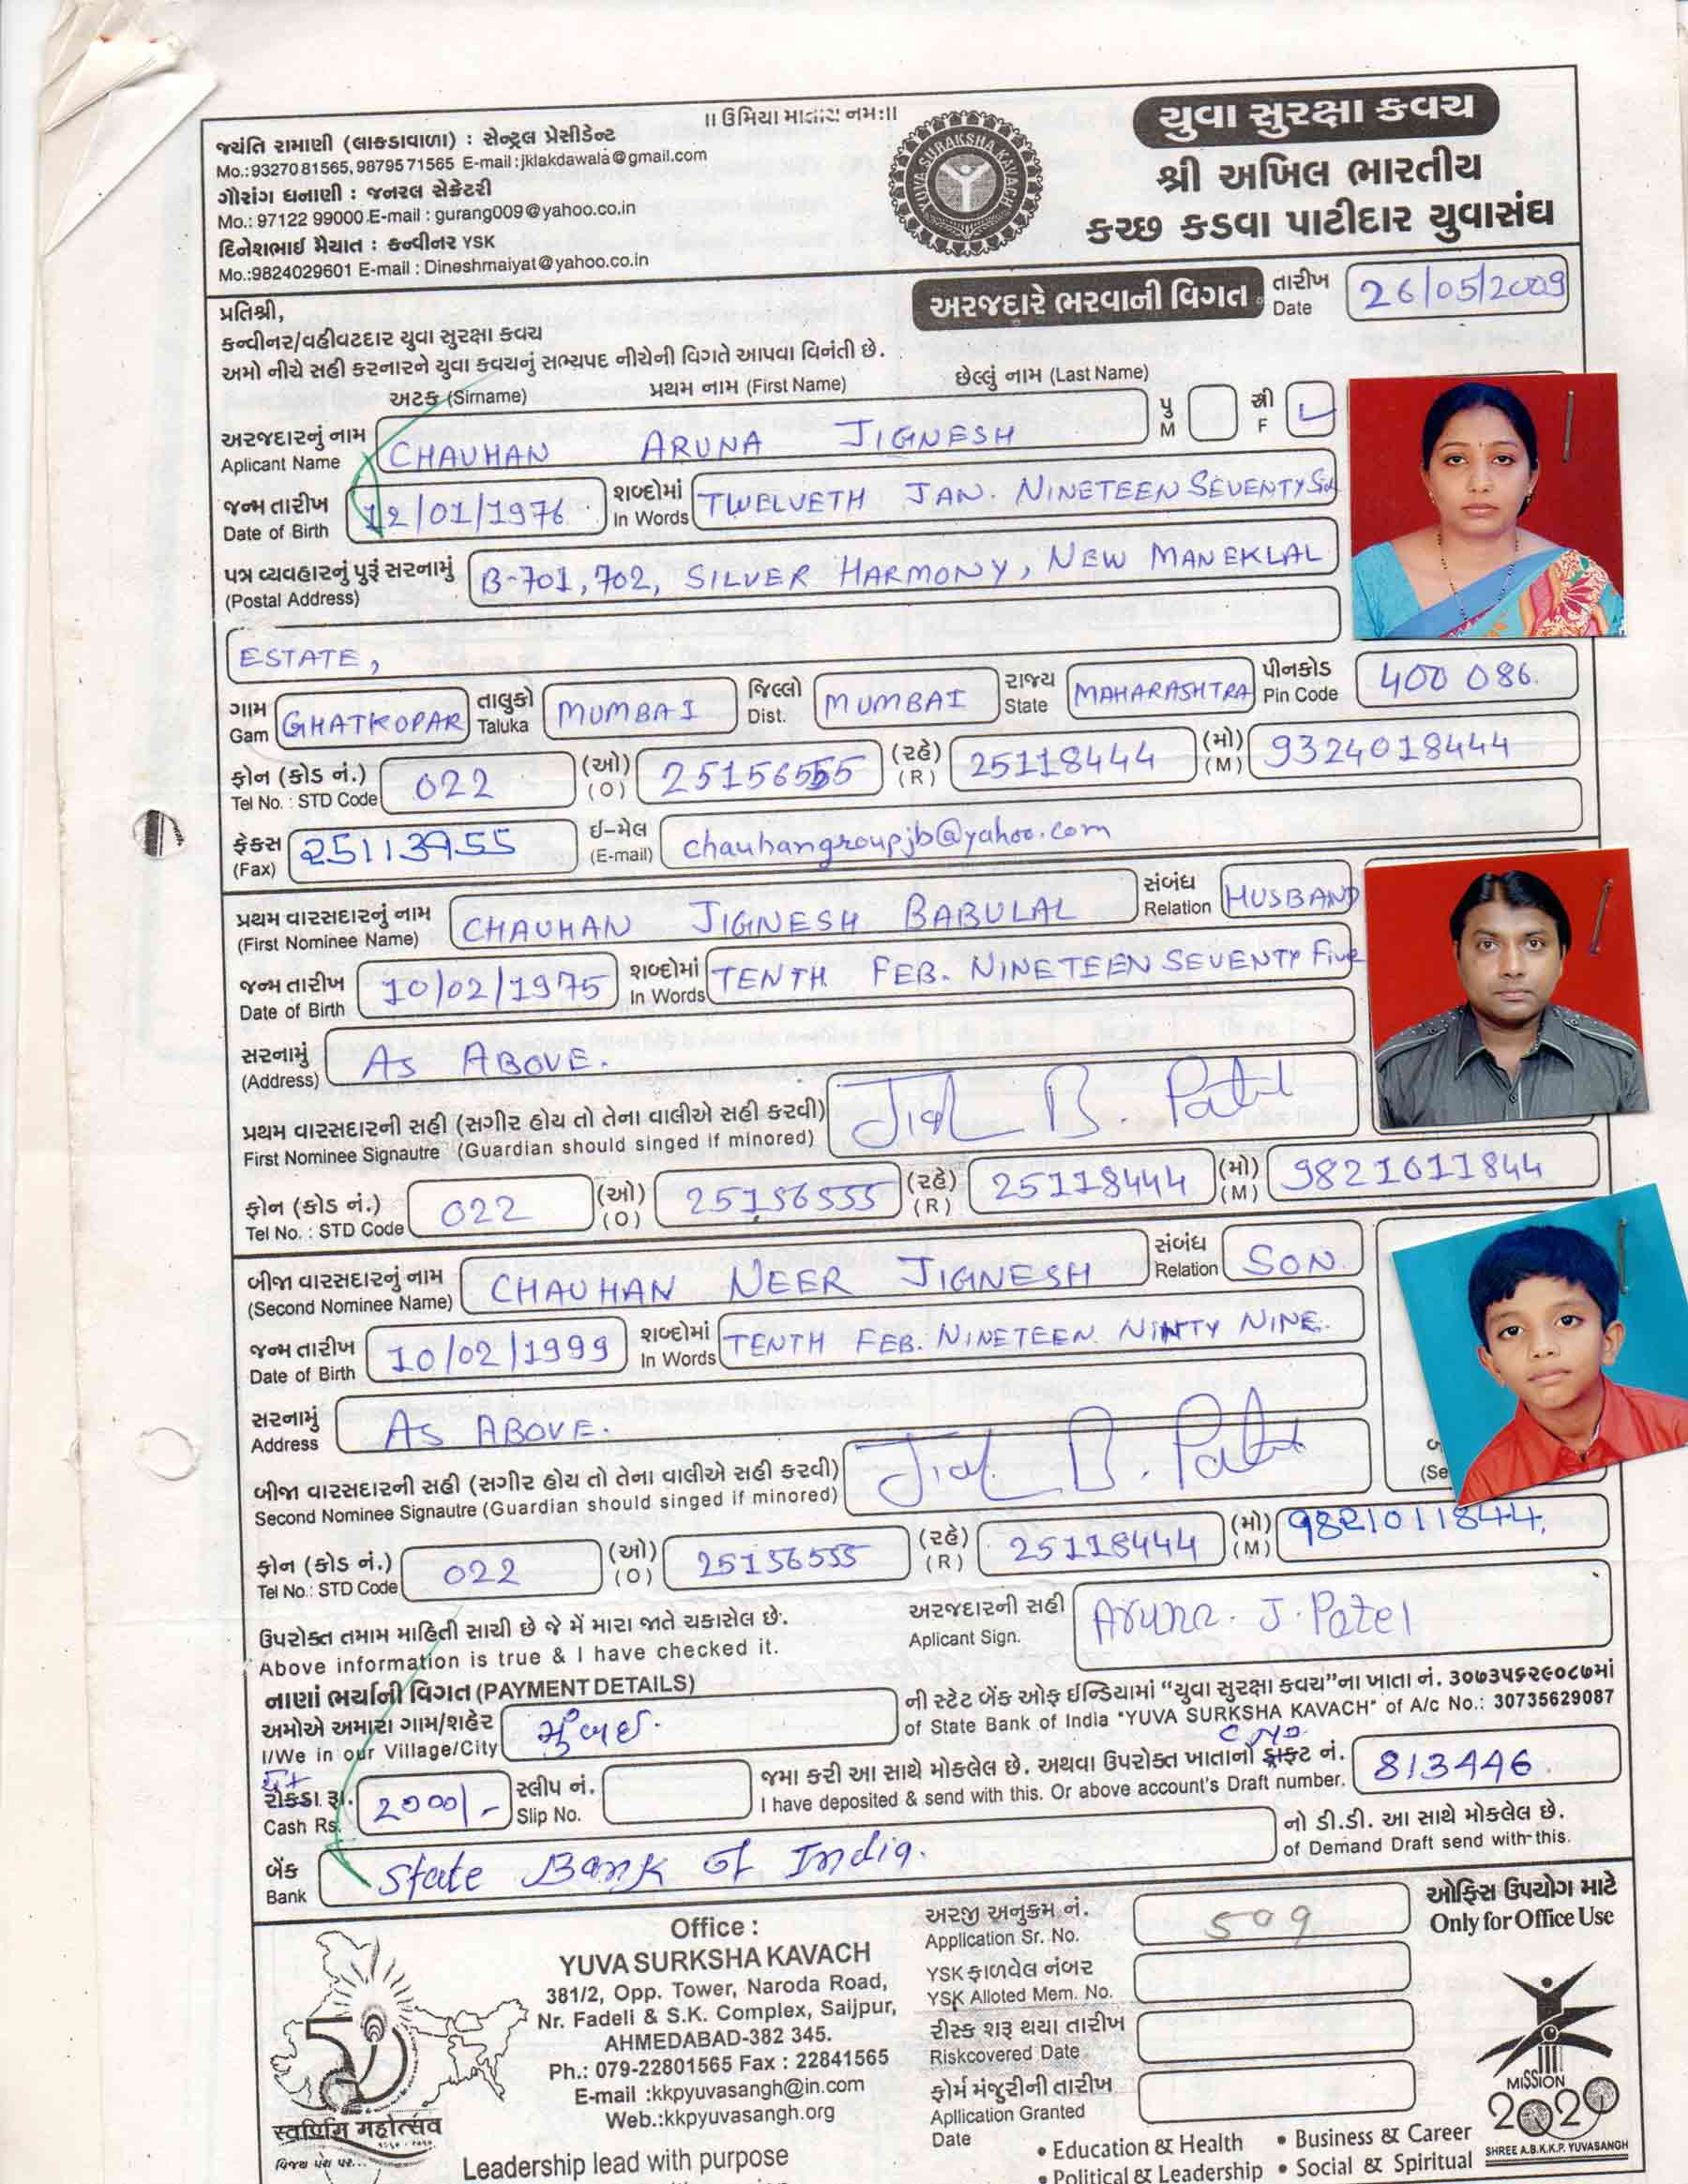 ॥ ઉમિયા માતાય નમઃ॥
જયંતિ રામાણી (લાકડાવાળા) : સેન્ટ્રલ પ્રેસીડેન્ટ
Mo.:9327081565, 9879571565 E-mail:jklakdawala@gmail.com
ગૌરાંગ ધનાણી : જનરલ સેક્રેટરી
Mo.: 97122 99000.E-mail : gurang009@yahoo.co.in
દિનેશભાઈ મૈયાત : કન્વીનર YSK
Mo.:9824029601 E-mail : Dineshmaiyat@yahoo.co.in
YUVA SURAKSHA KAVACH
યુવા સુરક્ષા કવચ
શ્રી અખિલ ભારતીય
કચ્છ કડવા પાટીદાર યુવાસંઘ
અરજદારે ભરવાની વિગત
તારીખ Date 26/05/2009
પ્રતિશ્રી,
કન્વીનર/વહીવટદાર યુવા સુરક્ષા કવચ
અમો નીચે સહી કરનારને યુવા કવચનું સભ્યપદ નીચેની વિગતે આપવા વિનંતી છે.
અટક (Sirname) પ્રથમ નામ (First Name) છેલ્લું નામ (Last Name)
અરજદારનું નામ Aplicant Name CHAUHAN ARUNA JIGNESH પુ M સ્રી F
જન્મ તારીખ Date of Birth 12/01/1976 શબ્દોમાં In Words TWELVETH JAN. NINETEEN SEVENTY
પત્ર વ્યવહારનું પુરૂં સરનામું (Postal Address) B-701,702, SILVER HARMONY, NEW MANEKLAL
ESTATE,
ગામ Gam GHATKOPAR તાલુકો Taluka MUMBAI જિલ્લો Dist. MUMBAI રાજ્ય State MAHARASHTRA પીનકોડ Pin Code 400 086.
ફોન (કોડ નં.) Tel No. : STD Code 022 (ઓ) (O) 25156555 (રહે) (R) 25118444 (મો) (M) 9324018444
ફેકસ (Fax) 25113955 ઈ-મેલ (E-mail) chauhangroupjb@yahoo.com
પ્રથમ વારસદારનું નામ (First Nominee Name) CHAUHAN JIGNESH BABULAL સંબંધ Relation HUSBAND
જન્મ તારીખ Date of Birth 10/02/1975 શબ્દોમાં In Words TENTH FEB. NINETEEN SEVENTY Five
સરનામું (Address) AS ABOVE.
પ્રથમ વારસદારની સહી (સગીર હોય તો તેના વાલીએ સહી કરવી)
First Nominee Signautre (Guardian should singed if minored) B. Patel
ફોન (કોડ નં.) Tel No. : STD Code 022 (ઓ) (O) 25156555 (રહે) (R) 25118444 (મો) (M) 9821011844
બીજા વારસદારનું નામ (Second Nominee Name) CHAUHAN NEER JIGNESH સંબંધ Relation SON.
જન્મ તારીખ Date of Birth 10/02/1999 શબ્દોમાં In Words TENTH FEB. NINETEEN NINTY NINE.
સરનામું Address AS ABOVE.
બીજા વારસદારની સહી (સગીર હોય તો તેના વાલીએ સહી કરવી)
Second Nominee Signautre (Guardian should singed if minored) B. Patel
(Se
ફોન (કોડ નં.) Tel No.: STD Code 022 (ઓ) (O) 25156555 (રહે) (R) 25118444 (મો) (M) 9821011844
ઉપરોક્ત તમામ માહિતી સાચી છે જે મેં મારા જાતે ચકાસેલ છે.
Above information is true & I have checked it.
અરજદારની સહી Aplicant Sign. Aruna. J. Patel
નાણાં ભર્યાની વિગત (PAYMENT DETAILS)
અમોએ અમારા ગામ/શહેર I/We in our Village/City મુંબઈ.
ની સ્ટેટ બેંક ઓફ ઈન્ડિયામાં “યુવા સુરક્ષા કવચ”ના ખાતા નં. ૩૦૭૩૫૬૨૯૦૮૭માં
of State Bank of India "YUVA SURKSHA KAVACH" of A/c No.: 30735629087
રોકડા રૂા. Cash Rs. 2000/- સ્લીપ નં. Slip No.
જમા કરી આ સાથે મોકલેલ છે. અથવા ઉપરોક્ત ખાતાનો ડ્રાફ્ટ નં. 813446.
I have deposited & send with this. Or above account's Draft number.
બેંક Bank State Bank of India.
નો ડી.ડી. આ સાથે મોકલેલ છે.
of Demand Draft send with this.
Office :
YUVA SURKSHA KAVACH
381/2, Opp. Tower, Naroda Road,
Nr. Fadeli & S.K. Complex, Saijpur,
AHMEDABAD-382 345.
Ph.: 079-22801565 Fax : 22841565
E-mail :kkpyuvasangh@in.com
Web.:kkpyuvasangh.org
Leadership lead with purpose
स्वर्णिम महोत्सव
અરજી અનુક્રમ નં. Application Sr. No. 509
YSK ફાળવેલ નંબર
YSK Alloted Mem. No.
રીસ્ક શરૂ થયા તારીખ
Riskcovered Date
ફોર્મ મંજુરીની તારીખ
Apllication Granted
Date
ઓફિસ ઉપયોગ માટે
Only for Office Use
MISSION
2020
SHREE A.B.K.K.P. YUVASANGH
• Education & Health • Business & Career
• Political & Leadership • Social & Spiritual